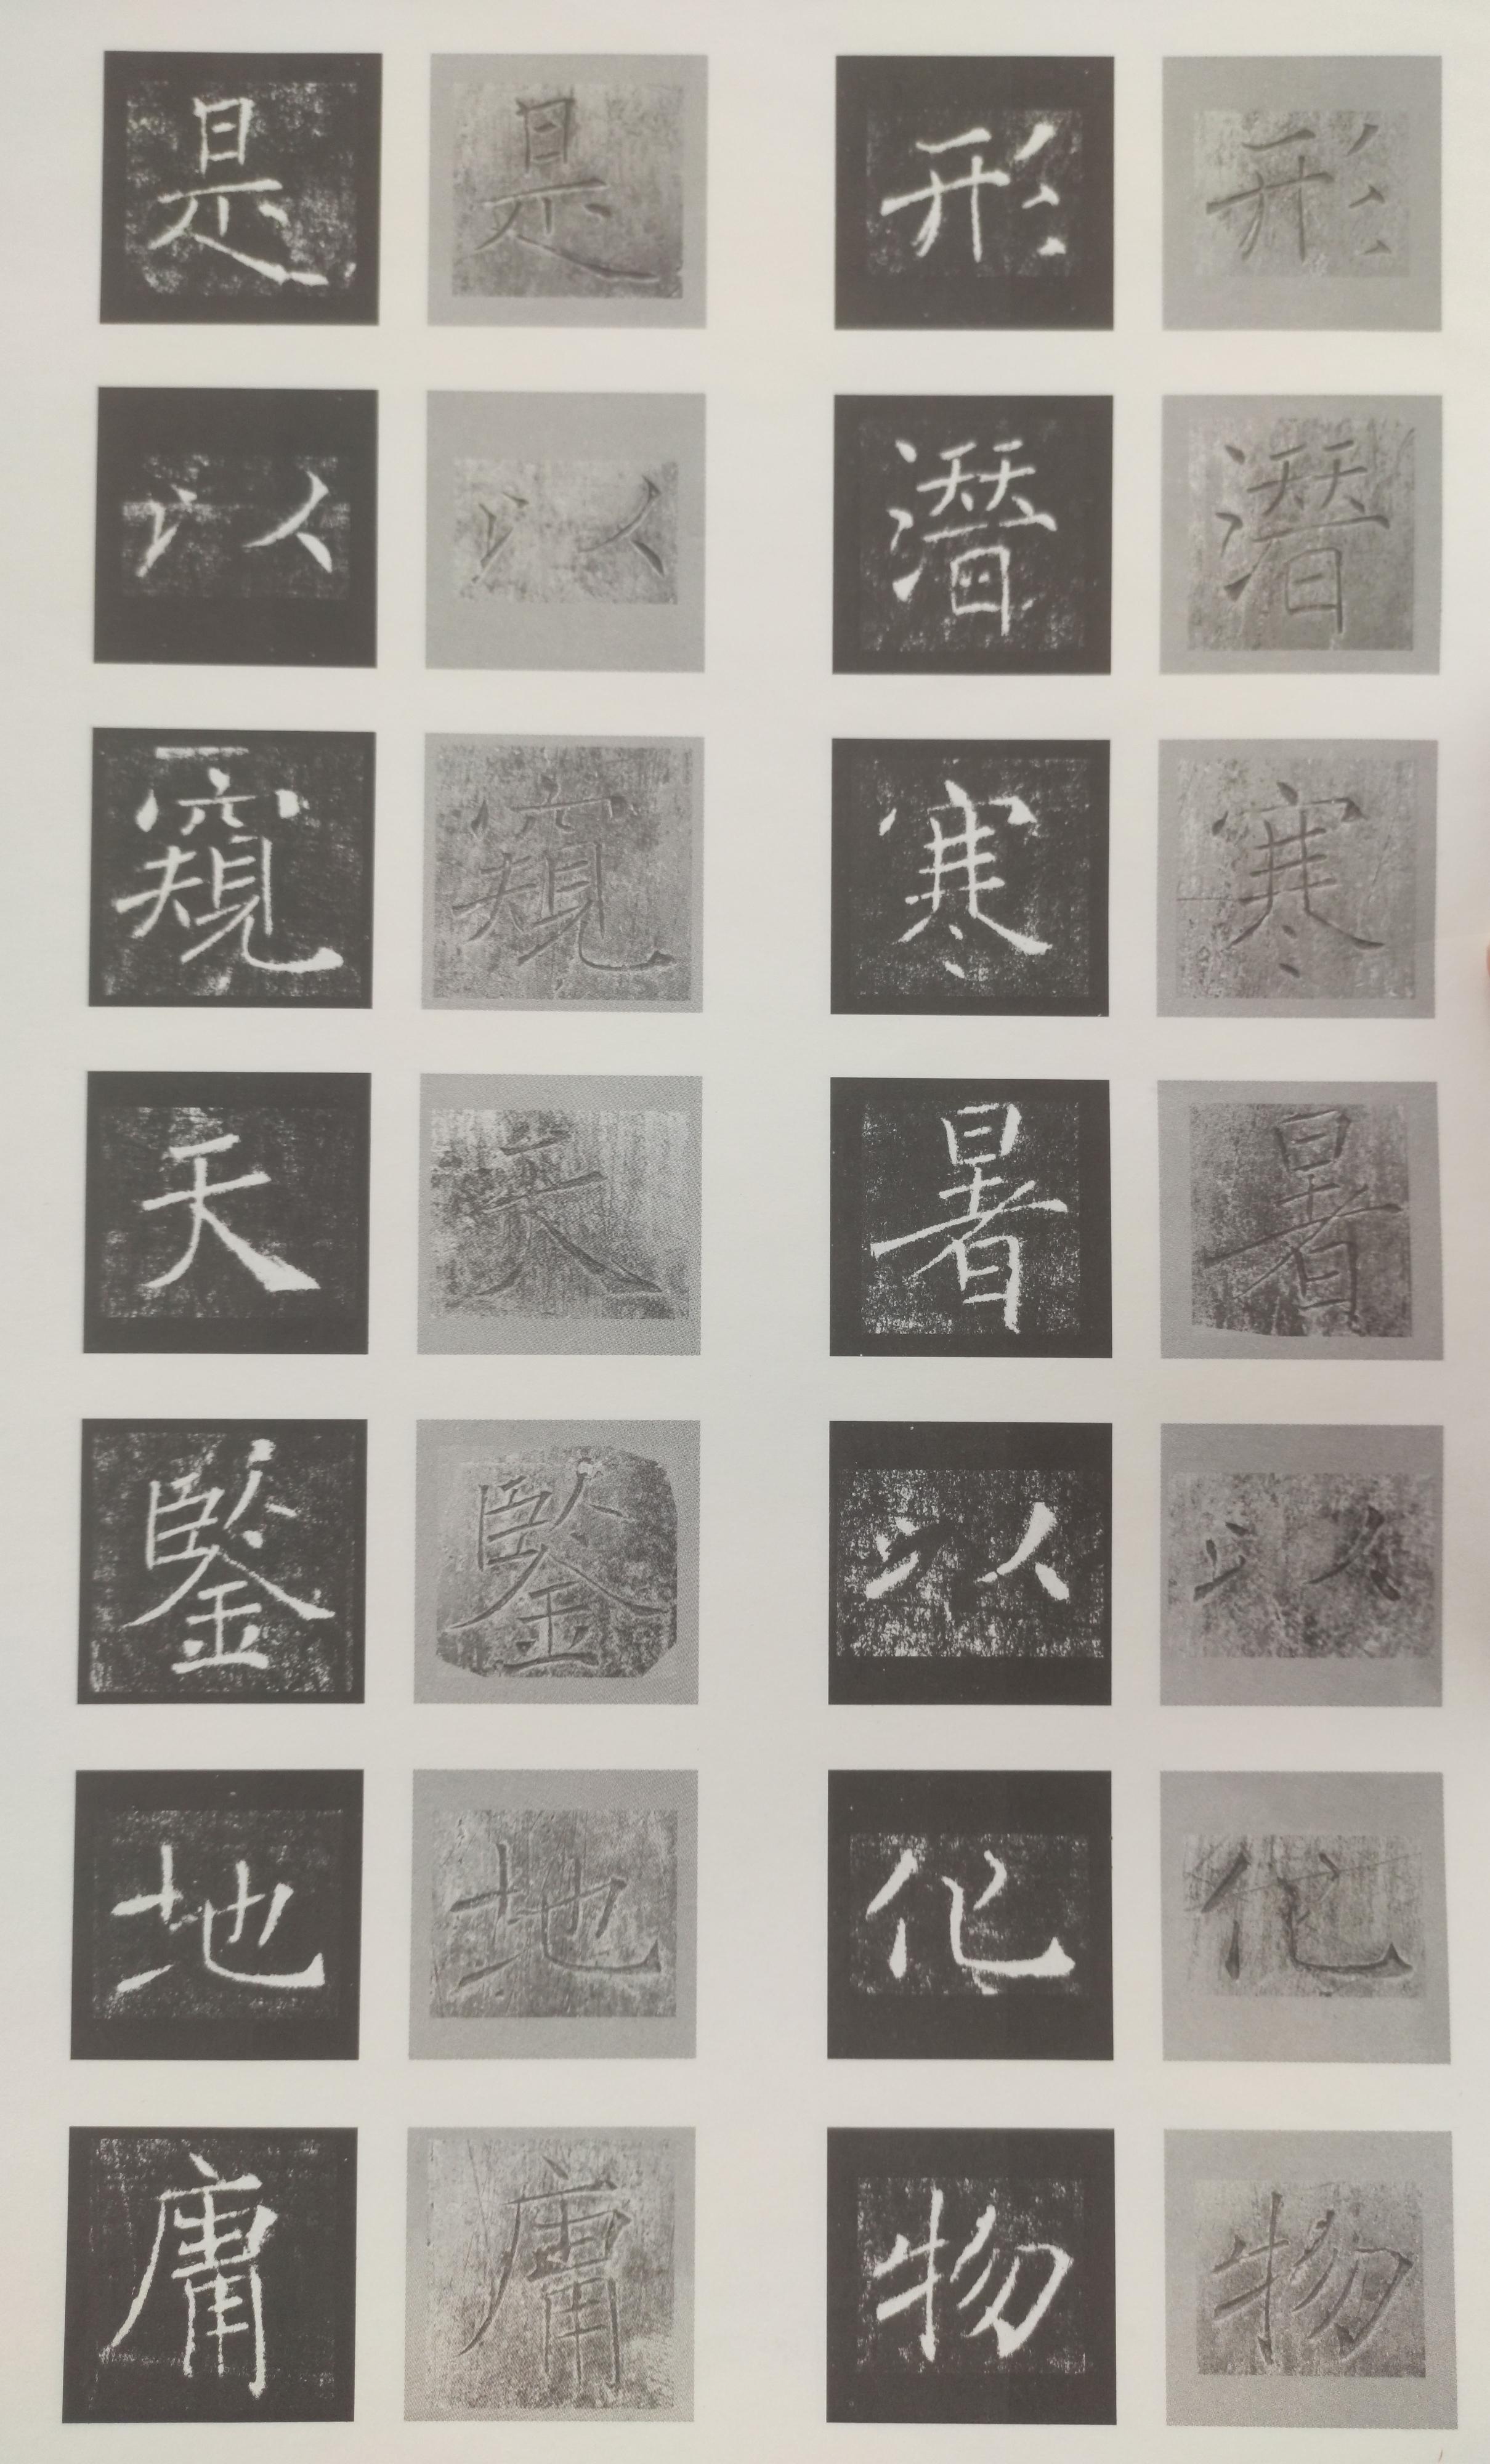 形潛寒暑以化物
形潛寒暑以化物
是以窺天鑒地庸
是以窺天鑒地庸